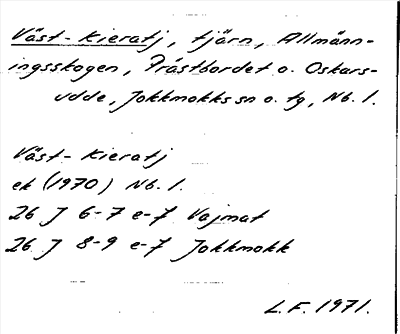 Väst-Kieratj, tjärn, Allmänn-
ingsskogen, Prästbordet o. Oskars-
udde, Jokkmokks sn o. tg, Nb. l.
Väst-Kieratj
ek (1970) Nb. l.
26 J 6-7 e-f Vajmat
26 J 8-9 e-f Jokkmokk
L.F. 1971.